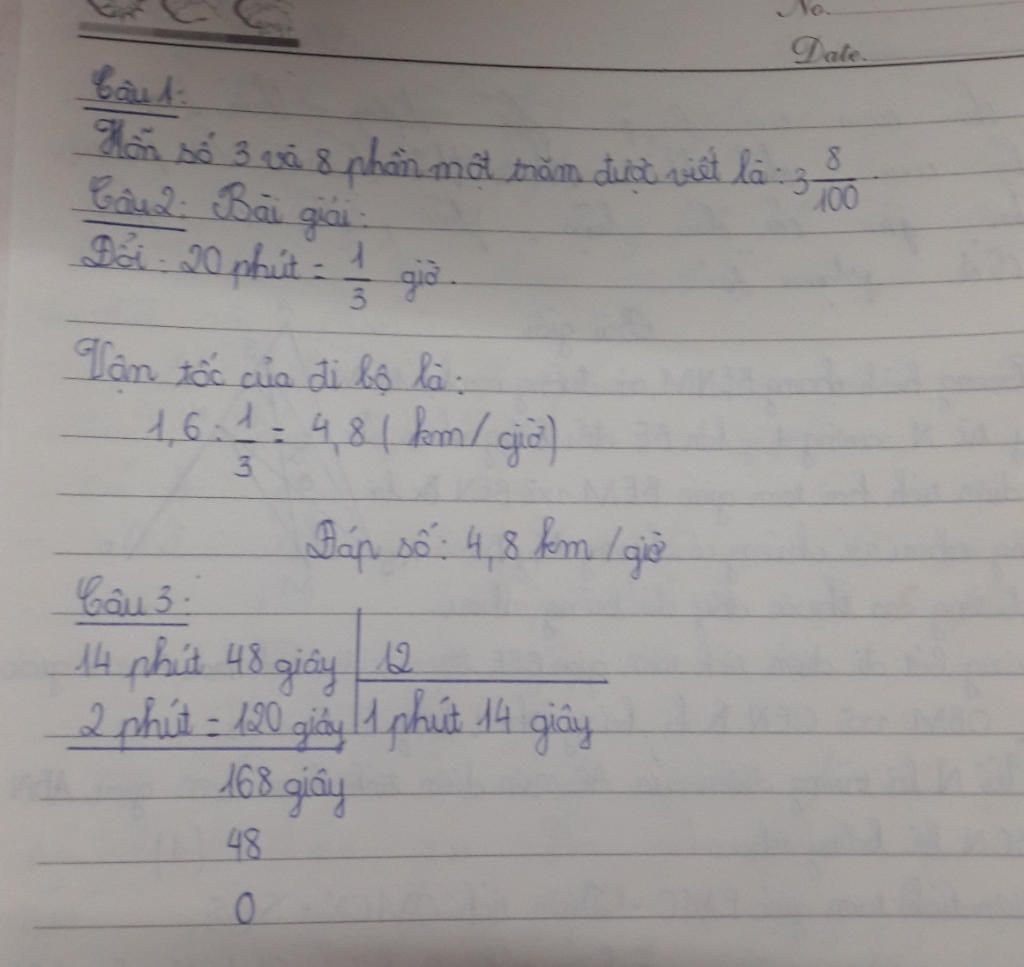 No.
Date.
Câu 1:
Hỗn số 3 và 8 phần một trăm được viết là: 3 8/100.
Câu 2: Bài giải:
Đổi: 20 phút = 1/3 giờ.
Vận tốc của đi bộ là:
1,6 : 1/3 = 4,8 ( km/giờ)
Đáp số: 4,8 km/giờ
Câu 3:
14 phút 48 giây 12
2 phút = 120 giây 1 phút 14 giây
168 giây
48
0